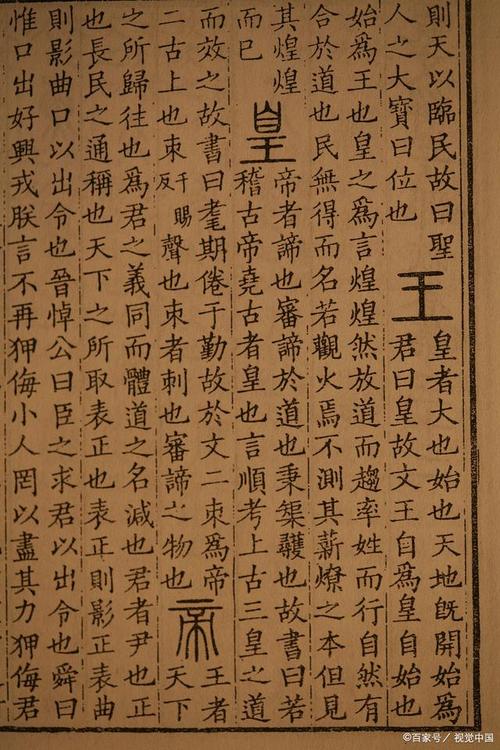 則天以臨民故曰聖
人之大寶曰位也
王
皇者大也始也天地旣開始為
君曰皇故文王自為皇自始也
始為王也皇之為言煌煌然放道而趨率姓而行自然有
合於道也民無得而名若觀火焉不測其薪燎之本但見
其煌煌
而已
皇
帝者諦也審諦於道也秉榘矱也故書曰若
稽古帝堯古者皇也言順考上古三皇之道
而效之故書曰耄期倦于勤故於文二朿為帝
二古上也朿千賜反聲也朿者刺也審諦之物也
帝
王者
天下
之所歸往也為君之義同而體道之名減也君者尹也正
也長民之通稱也天下之所取表正也表正則影正表曲
則影曲口以出令也晉悼公曰臣之求君以出令也舜曰
惟口出好興戎朕言不再狎侮小人罔以盡其力狎侮君
©百家号／视觉中国